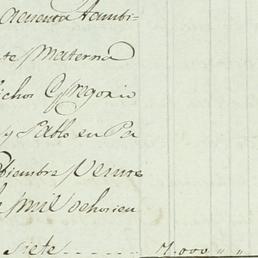 cuenta tambi-
te Materna
ichos Gregorio
y Pablo en Pa
biembre Veinte
e mil ochocien
siete 7,000 " "